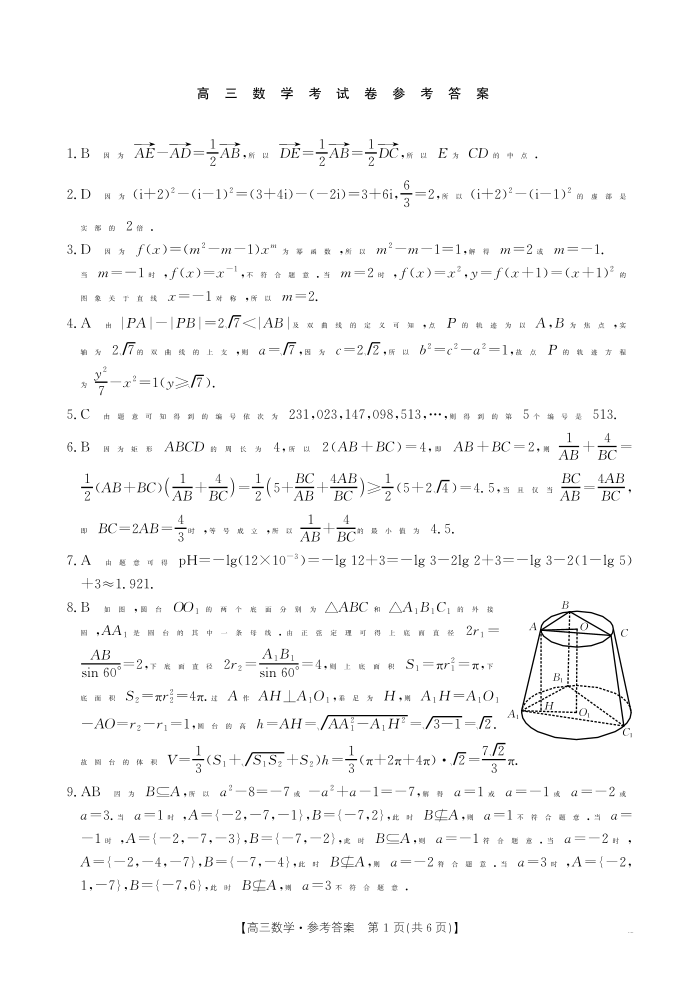 高三数学考试卷参考答案
1. B 因为 $\overrightarrow{AE}-\overrightarrow{AD}=\frac{1}{2}\overrightarrow{AB}$,所以 $\overrightarrow{DE}=\frac{1}{2}\overrightarrow{AB}=\frac{1}{2}\overrightarrow{DC}$,所以 E 为 CD 的中点.
2. D 因为 $(i+2)^2-(i-1)^2=(3+4i)-(-2i)=3+6i$,$\frac{6}{3}=2$,所以 $(i+2)^2-(i-1)^2$ 的虚部是
实部的 2 倍.
3. D 因为 $f(x)=(m^2-m-1)x^m$ 为幂函数,所以 $m^2-m-1=1$,解得 m=2 或 m=-1.
当 m=-1 时,$f(x)=x^{-1}$,不符合题意.当 m=2 时,$f(x)=x^2$,$y=f(x+1)=(x+1)^2$ 的
图象关于直线 x=-1 对称,所以 m=2.
4. A 由 $|PA|-|PB|=2\sqrt{7}<|AB|$ 及双曲线的定义可知,点 P 的轨迹为以 A,B 为焦点,实
轴为 $2\sqrt{7}$ 的双曲线的上支,则 $a=\sqrt{7}$,因为 $c=2\sqrt{2}$,所以 $b^2=c^2-a^2=1$,故点 P 的轨迹方程
为 $\frac{y^2}{7}-x^2=1(y\geqslant\sqrt{7})$.
5. C 由题意可知得到的编号依次为 231,023,147,098,513,…,则得到的第 5 个编号是 513.
6. B 因为矩形 ABCD 的周长为 4,所以 2(AB+BC)=4,即 AB+BC=2,则 $\frac{1}{AB}+\frac{4}{BC}=$
$\frac{1}{2}(AB+BC)\left(\frac{1}{AB}+\frac{4}{BC}\right)=\frac{1}{2}\left(5+\frac{BC}{AB}+\frac{4AB}{BC}\right)\geqslant\frac{1}{2}(5+2\sqrt{4})=4.5$,当且仅当 $\frac{BC}{AB}=\frac{4AB}{BC}$,
即 $BC=2AB=\frac{4}{3}$ 时,等号成立,所以 $\frac{1}{AB}+\frac{4}{BC}$ 的最小值为 4.5.
7. A 由题意可得 $pH=-\lg(12\times10^{-3})=-\lg 12+3=-\lg 3-2\lg 2+3=-\lg 3-2(1-\lg 5)$
$+3\approx1.921$.
8. B 如图,圆台 $OO_1$ 的两个底面分别为 △ABC 和 $△A_1B_1C_1$ 的外接
圆,$AA_1$ 是圆台的其中一条母线.由正弦定理可得上底面直径 $2r_1=$
$\frac{AB}{\sin 60°}=2$,下底面直径 $2r_2=\frac{A_1B_1}{\sin 60°}=4$,则上底面积 $S_1=\pi r_1^2=\pi$,下
底面积 $S_2=\pi r_2^2=4\pi$.过 A 作 $AH\perp A_1O_1$,垂足为 H,则 $A_1H=A_1O_1$
$-AO=r_2-r_1=1$,圆台的高 $h=AH=\sqrt{AA_1^2-A_1H^2}=\sqrt{3-1}=\sqrt{2}$.
故圆台的体积 $V=\frac{1}{3}(S_1+\sqrt{S_1S_2}+S_2)h=\frac{1}{3}(\pi+2\pi+4\pi)\cdot\sqrt{2}=\frac{7\sqrt{2}}{3}\pi$.
B
A
O
C
B₁
H
A₁
O₁
C₁
9. AB 因为 B⊆A,所以 $a^2-8=-7$ 或 $-a^2+a-1=-7$,解得 a=1 或 a=-1 或 a=-2 或
a=3.当 a=1 时,A={-2,-7,-1},B={-7,2},此时 B⊈A,则 a=1 不符合题意.当 a=
-1 时,A={-2,-7,-3},B={-7,-2},此时 B⊆A,则 a=-1 符合题意.当 a=-2 时,
A={-2,-4,-7},B={-7,-4},此时 B⊈A,则 a=-2 符合题意.当 a=3 时,A={-2,
1,-7},B={-7,6},此时 B⊈A,则 a=3 不符合题意.
【高三数学·参考答案 第 1 页(共 6 页)】